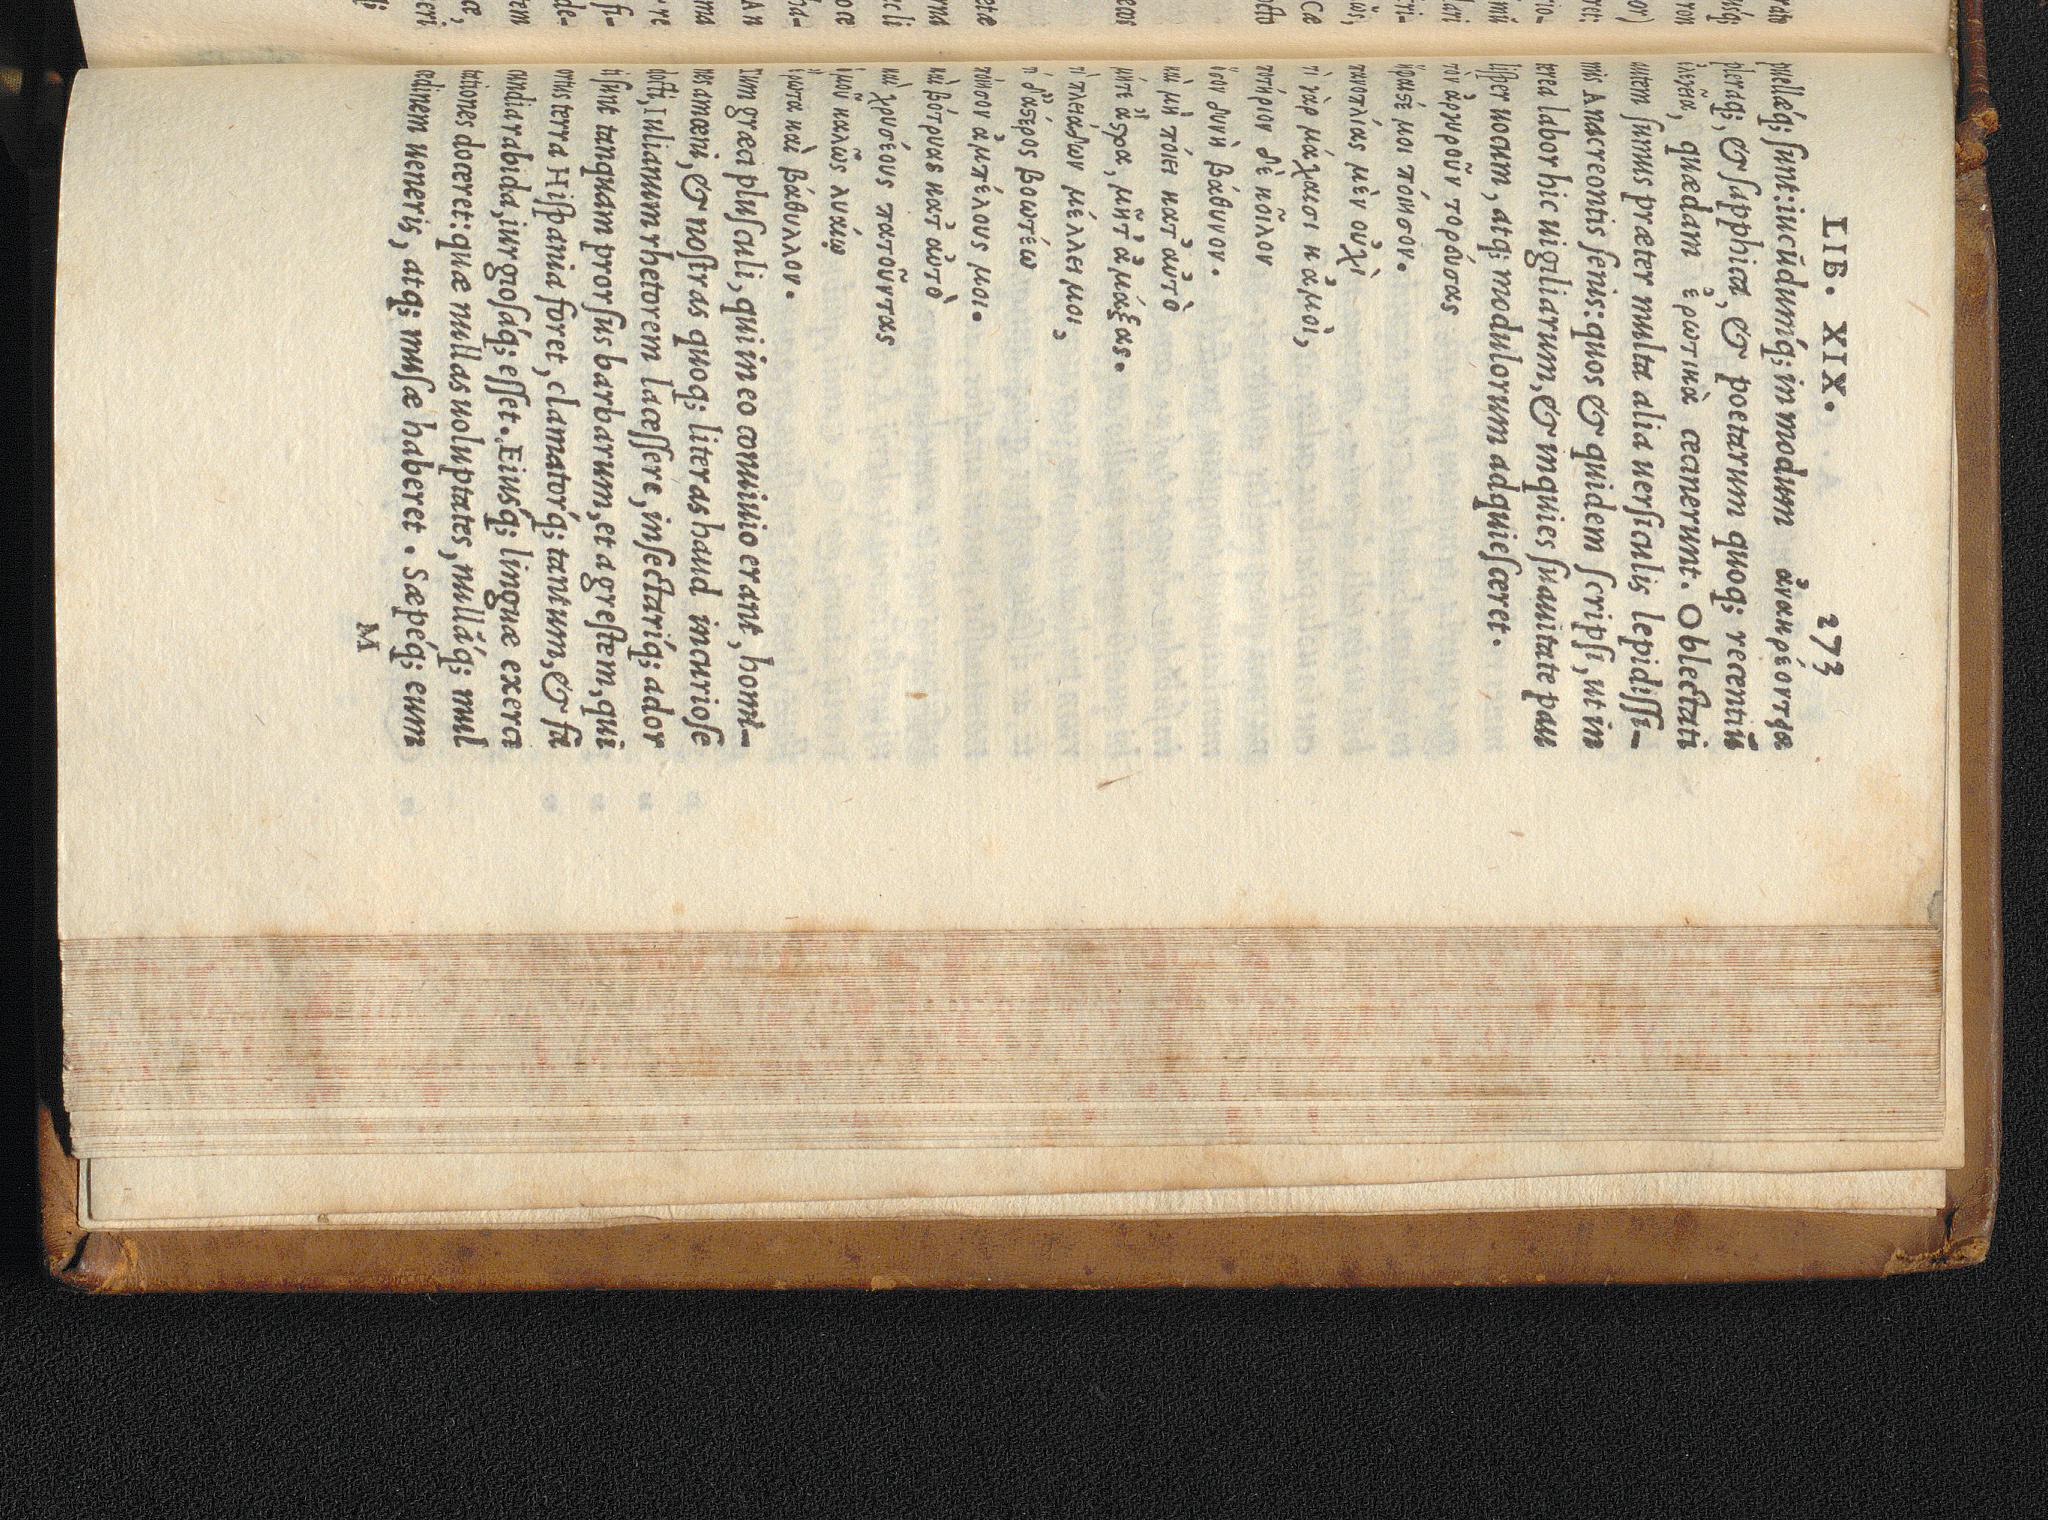 LIB. XIX. 273
puellæq; sunt: iucūdumq́; in modum ἀνακρέοντϟα
pleraq;, & sapphica, & poetarum quoq; recentiū
ἐλεγεῖα, quædam ἐρωτικὰ cecinerunt. Oblectati
autem sumus præter multa alia uersiculis lepidissi-
mis Anacreontis senis: quos & quidem scripsi, ut in
terea labor hic uigiliarum, & inquies suauitate pau
lisper uocum, atq; modulorum adquiesceret.
τὸν ἄργυρον τορεύσας
ἥφαισέ μοι πόησον.
πανοπλίας μὲν οὐχὶ
τί γὰρ μάχαισι κἀμοὶ,
ποτήριον δὲ κοῖλον
ὅσον δυνῇ βάθυνον.
καὶ μὴ πόιει κατ' αὐτὸ
μήτε ἄστρα, μήτ' ἁμάξας.
τί πλειάδων μέλλει μοι,
τί δ' ἀστέρος βοωτέω
πόησον ἀμπέλους μοι.
καὶ βότρυας κατ' αὐτὸ
καὶ χρυσέους πατοῦντας
ὁμοῦ καλῶς λυαίῳ
ἔρωτα καὶ βάθυλλον.
Tum græci plusculi, qui in eo conuiuio erant, homi-
nes amœni, & nostras quoq; literas haud incuriose
docti, Iulianum rhetorem lacessere, insectariq́; ador
ti sunt tanquam prorsus barbarum, et agrestem, qui
ortus terra Hispania foret, clamatorq́; tantum, & fa
cundia rabida, iurgiosaq́; esset. Eiusq́; linguæ exerci
tationes doceret: quæ nullas uoluptates, nullāq́; mul
cedinem ueneris, atq; musæ haberet. Sæpeq́; eum
M